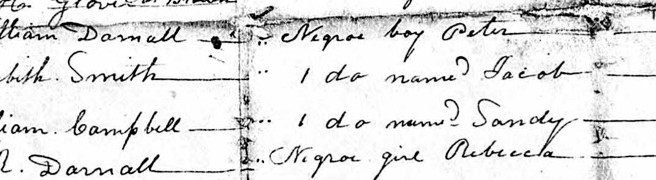 Glover
lliam Darnall — " Negroe boy Peter
beth. Smith — " 1 do named Jacob
liam. Campbell — " 1 do named Sandy
R. Darnall — " Negroe girl Rebecca